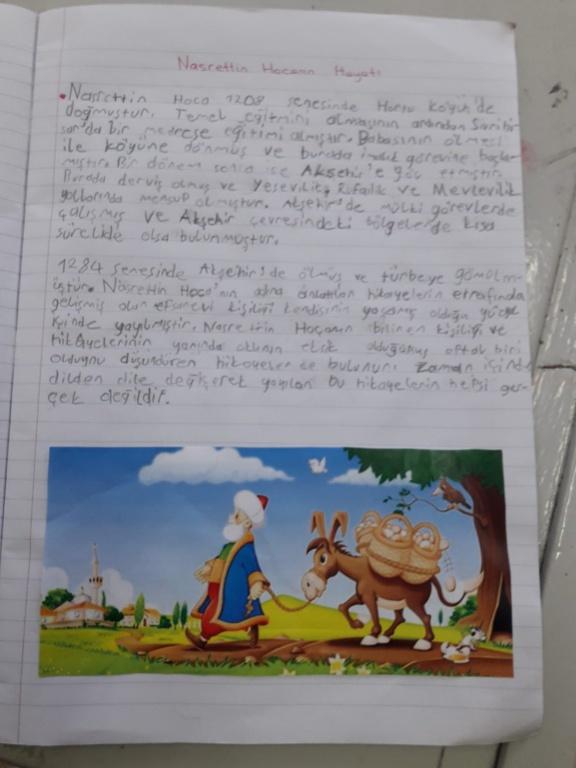 Nasrettin Hocanın Hayatı
• Nasrettin Hoca 1208 senesinde Hortu köyün'de
doğmuştur. Temel eğitmini almasının ardından Sivrihi-
sar'da bir medrese eğitimi almıştır. Babasının ölmesi
ile köyüne dönmüş ve burada imamlık görevine başla-
mıştır. Bir dönem sonra ise Akşehir'e göç etmiştir.
Burada derviş olmuş ve Yesevilik, Rufailik ve Mevlevilik
yollarında mensup olmuştur. Akşehir'de mülki görevlerde
çalışmış ve Akşehir çevresindeki bölgelerde kısa
sürelide olsa bulunmuştur.
1284 senesinde Akşehir'de ölmüş ve türbeye gömülm-
üştür. Nasrettin Hoca'nın adına anlatılan hikayelerin etrafında
gelişmiş olan efsanevi kişiliği kendisinin yaşamış olduğu yüzyıl
içinde yayılmıştır. Nasrettin Hocanın bilinen kişiliği ve
hikayelerinin yanında aklının eksik olduğunu aptal biri
olduğunu düşündüren hikayeler de bulunur. Zaman içinde
dilden dile değişerek yayılan bu hikayelerin hepsi ger-
çek değildir.